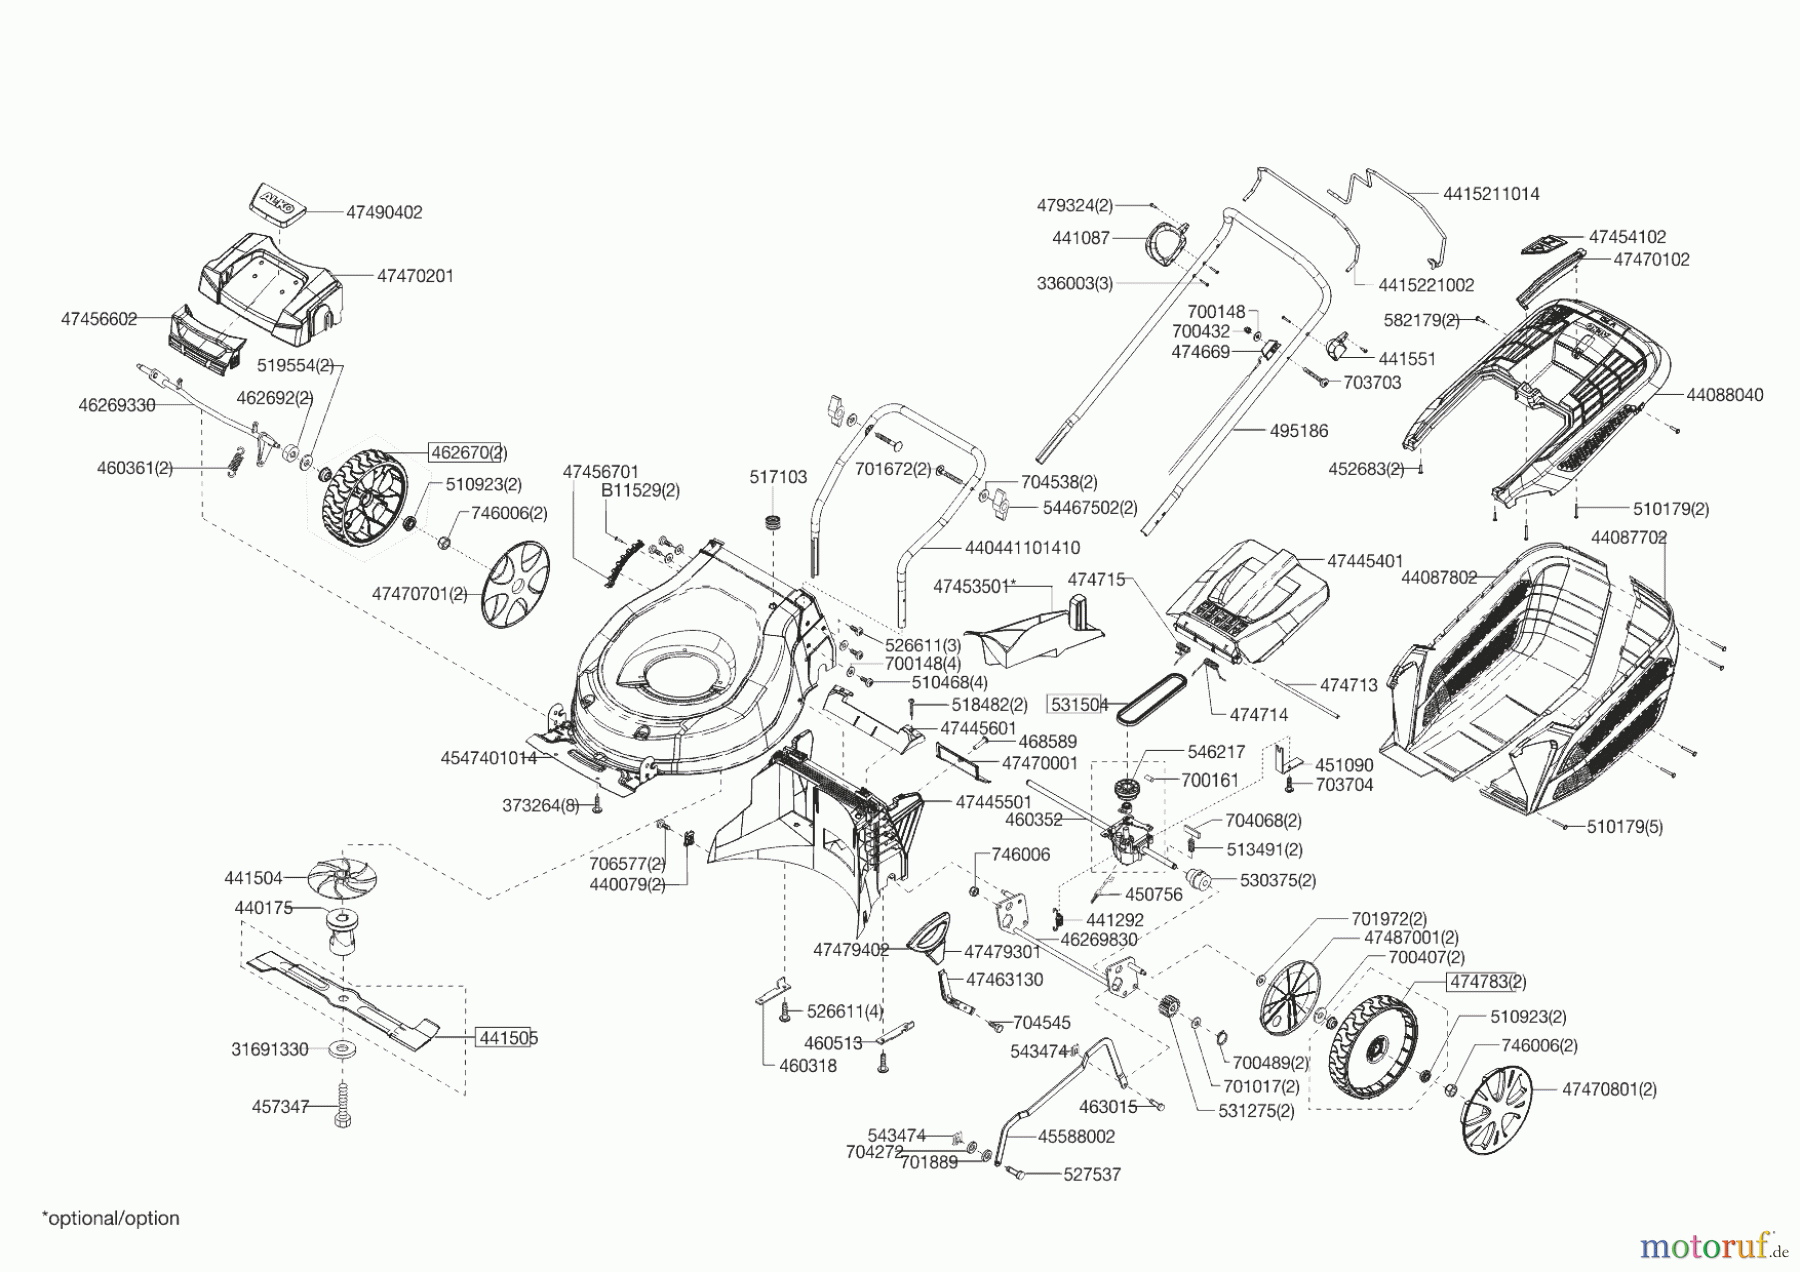 ALKO
47490402
47470201
47456602
519554(2)
462692(2)
46269330
460361(2)
462670(2)
510923(2)
746006(2)
47470701(2)
47456701
B11529(2)
517103
701672(2)
704538(2)
54467502(2)
440441101410
479324(2)
441087
336003(3)
700148
700432
474669
4415211014
4415221002
441551
703703
495186
47454102
47470102
582179(2)
44088040
452683(2)
510179(2)
44087702
44087802
47445401
47453501*
474715
526611(3)
700148(4)
510468(4)
518482(2)
47445601
468589
47470001
531504
474714
474713
4547401014
373264(8)
47445501
460352
546217
700161
451090
703704
704068(2)
513491(2)
530375(2)
510179(5)
706577(2)
440079(2)
746006
450756
441292
46269830
441504
440175
441505
31691330
457347
47479402
47479301
47463130
704545
526611(4)
460513
460318
543474
463015
45588002
543474
704272
701889
527537
701972(2)
47487001(2)
700407(2)
474783(2)
510923(2)
746006(2)
47470801(2)
700489(2)
701017(2)
531275(2)
*optional/option
motoruf.de